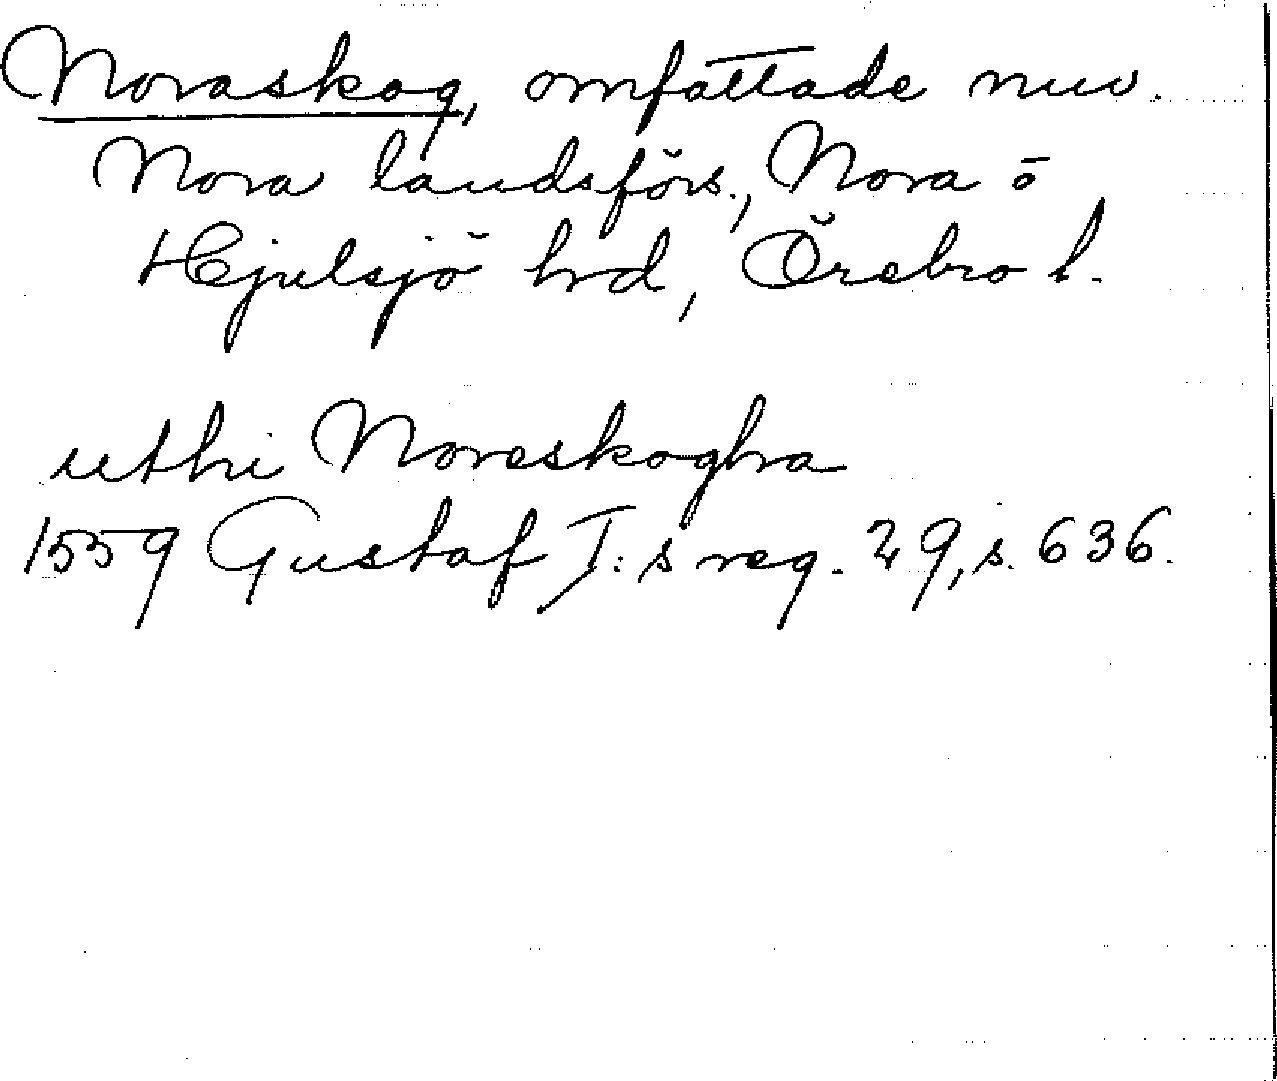 Noraskog, omfattade nuv.
Nora landsförs., Nora o
Hjulsjö hrd, Örebro l.
uthi Noreskoghra
1559 Gustaf I:s reg. 29, s. 636.